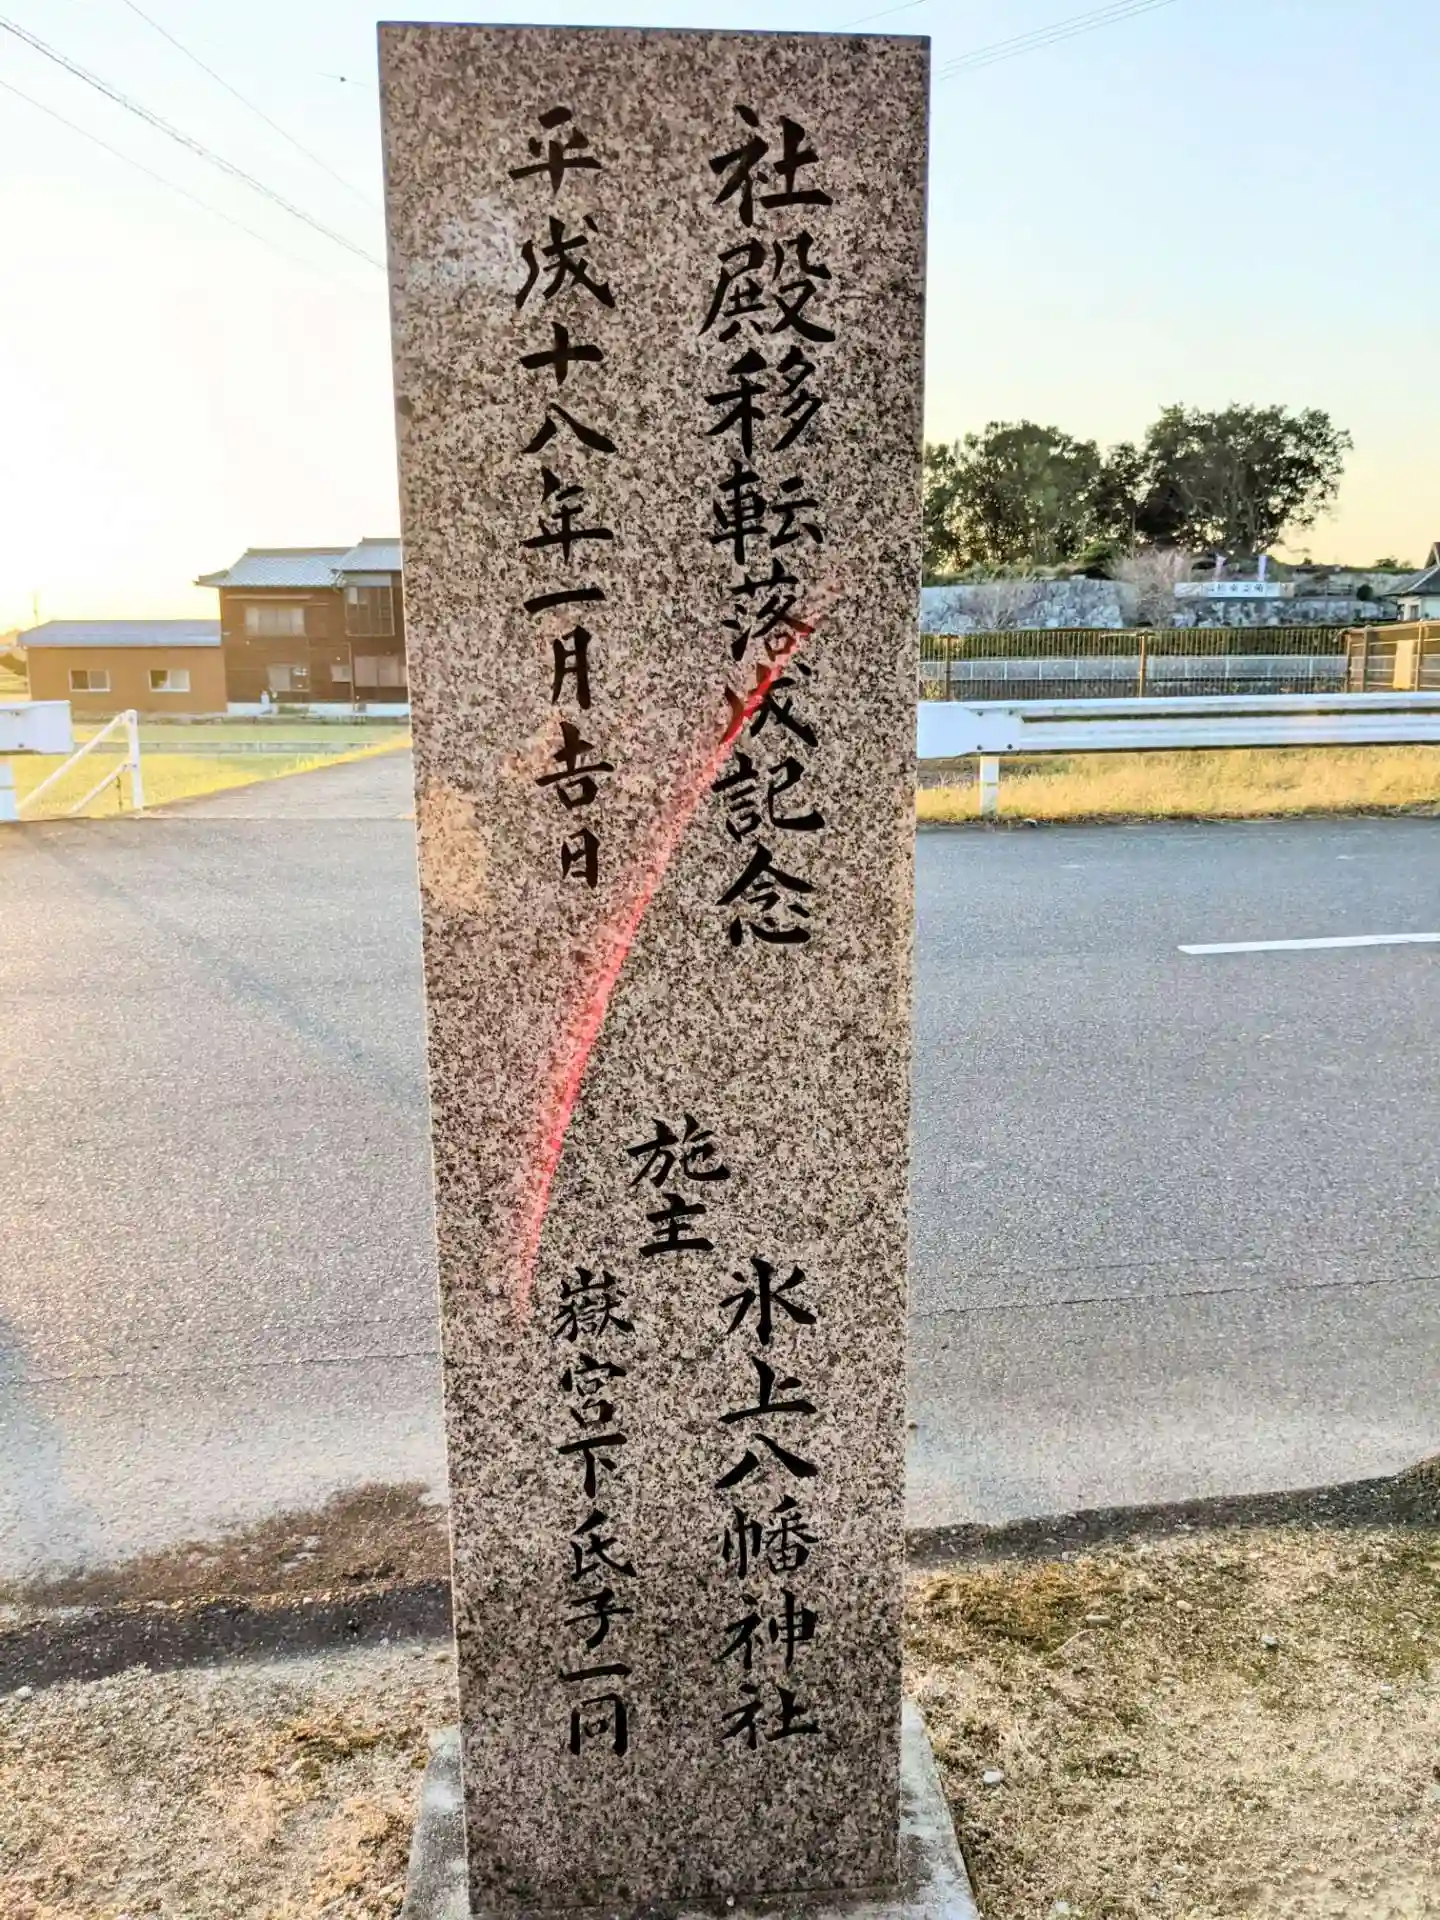 社殿移転落成記念
平成十八年一月吉日
施主
氷上八幡神社
嶽宮下氏子一同